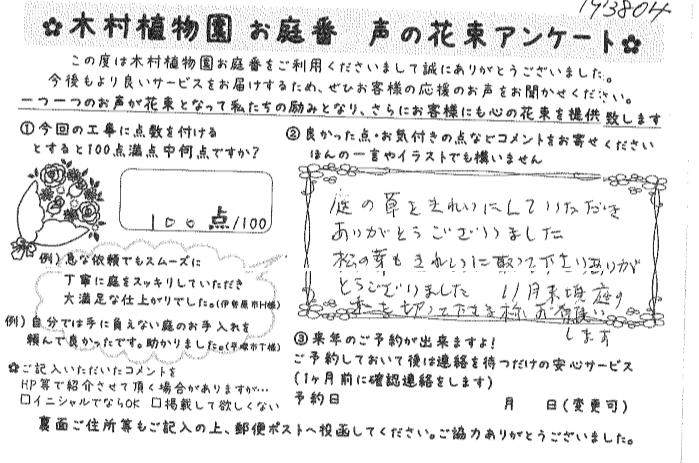 193804
木村植物園 お庭番 声の花束アンケート
この度は木村植物園お庭番をご利用くださいまして誠にありがとうございました。
今後もより良いサービスをお届けするため、ぜひお客様の応援のお声をお聞かせください。
一つ一つのお声が花束となって私たちの励みとなり、さらにお客様にも心の花束を提供致します
①今回の工事に点数を付ける
とすると100点満点中何点ですか?
100 点/100
例)急な依頼でもスムーズに
丁寧に庭をスッキリしていただき
大満足な仕上がりでした。(伊勢原市H様)
例)自分では手に負えない庭のお手入れを
頼んで良かったです。助かりました。(平塚市T様)
✿ご記入いただいたコメントを
HP等で紹介させて頂く場合がありますが…
□イニシャルでならOK □掲載して欲しくない
②良かった点・お気付きの点などコメントをお寄せください
ほんの一言やイラストでも構いません
庭の草をきれいにしていただき
ありがとうございました
松の芽もきれいに取って下さりありが
とうございました 11月末頃庭の
木を切って下さる様お願い
します
③来年のご予約が出来ますよ!
ご予約しておいて後は連絡を待つだけの安心サービス
(1ヶ月前に確認連絡をします)
予約日 月 日(変更可)
裏面ご住所等もご記入の上、郵便ポストへ投函してください。ご協力ありがとうございました。